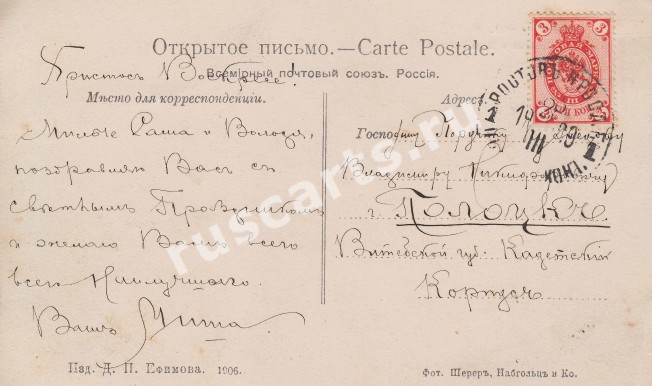 Открытое письмо.—Carte Postale.
Всемірный почтовый союзъ. Россія.
Христосъ Воскресе!
Мѣсто для корреспонденціи.
Милые Саша и Володя,
поздравляю Васъ съ
свѣтлымъ Праздникомъ
и желаю Вамъ всего
всего наилучшаго.
Вашъ Миша
Адресъ
Господину Поручику
Владиміру Никифоровичу
г. Полоцкъ.
Витебской губ. Кадетскій
Корпусъ
3 3
3 3
Изд. Д. П. Ефимова. 1906.
Фот. Шереръ, Набгольцъ и Ко.
ruscarts.ru